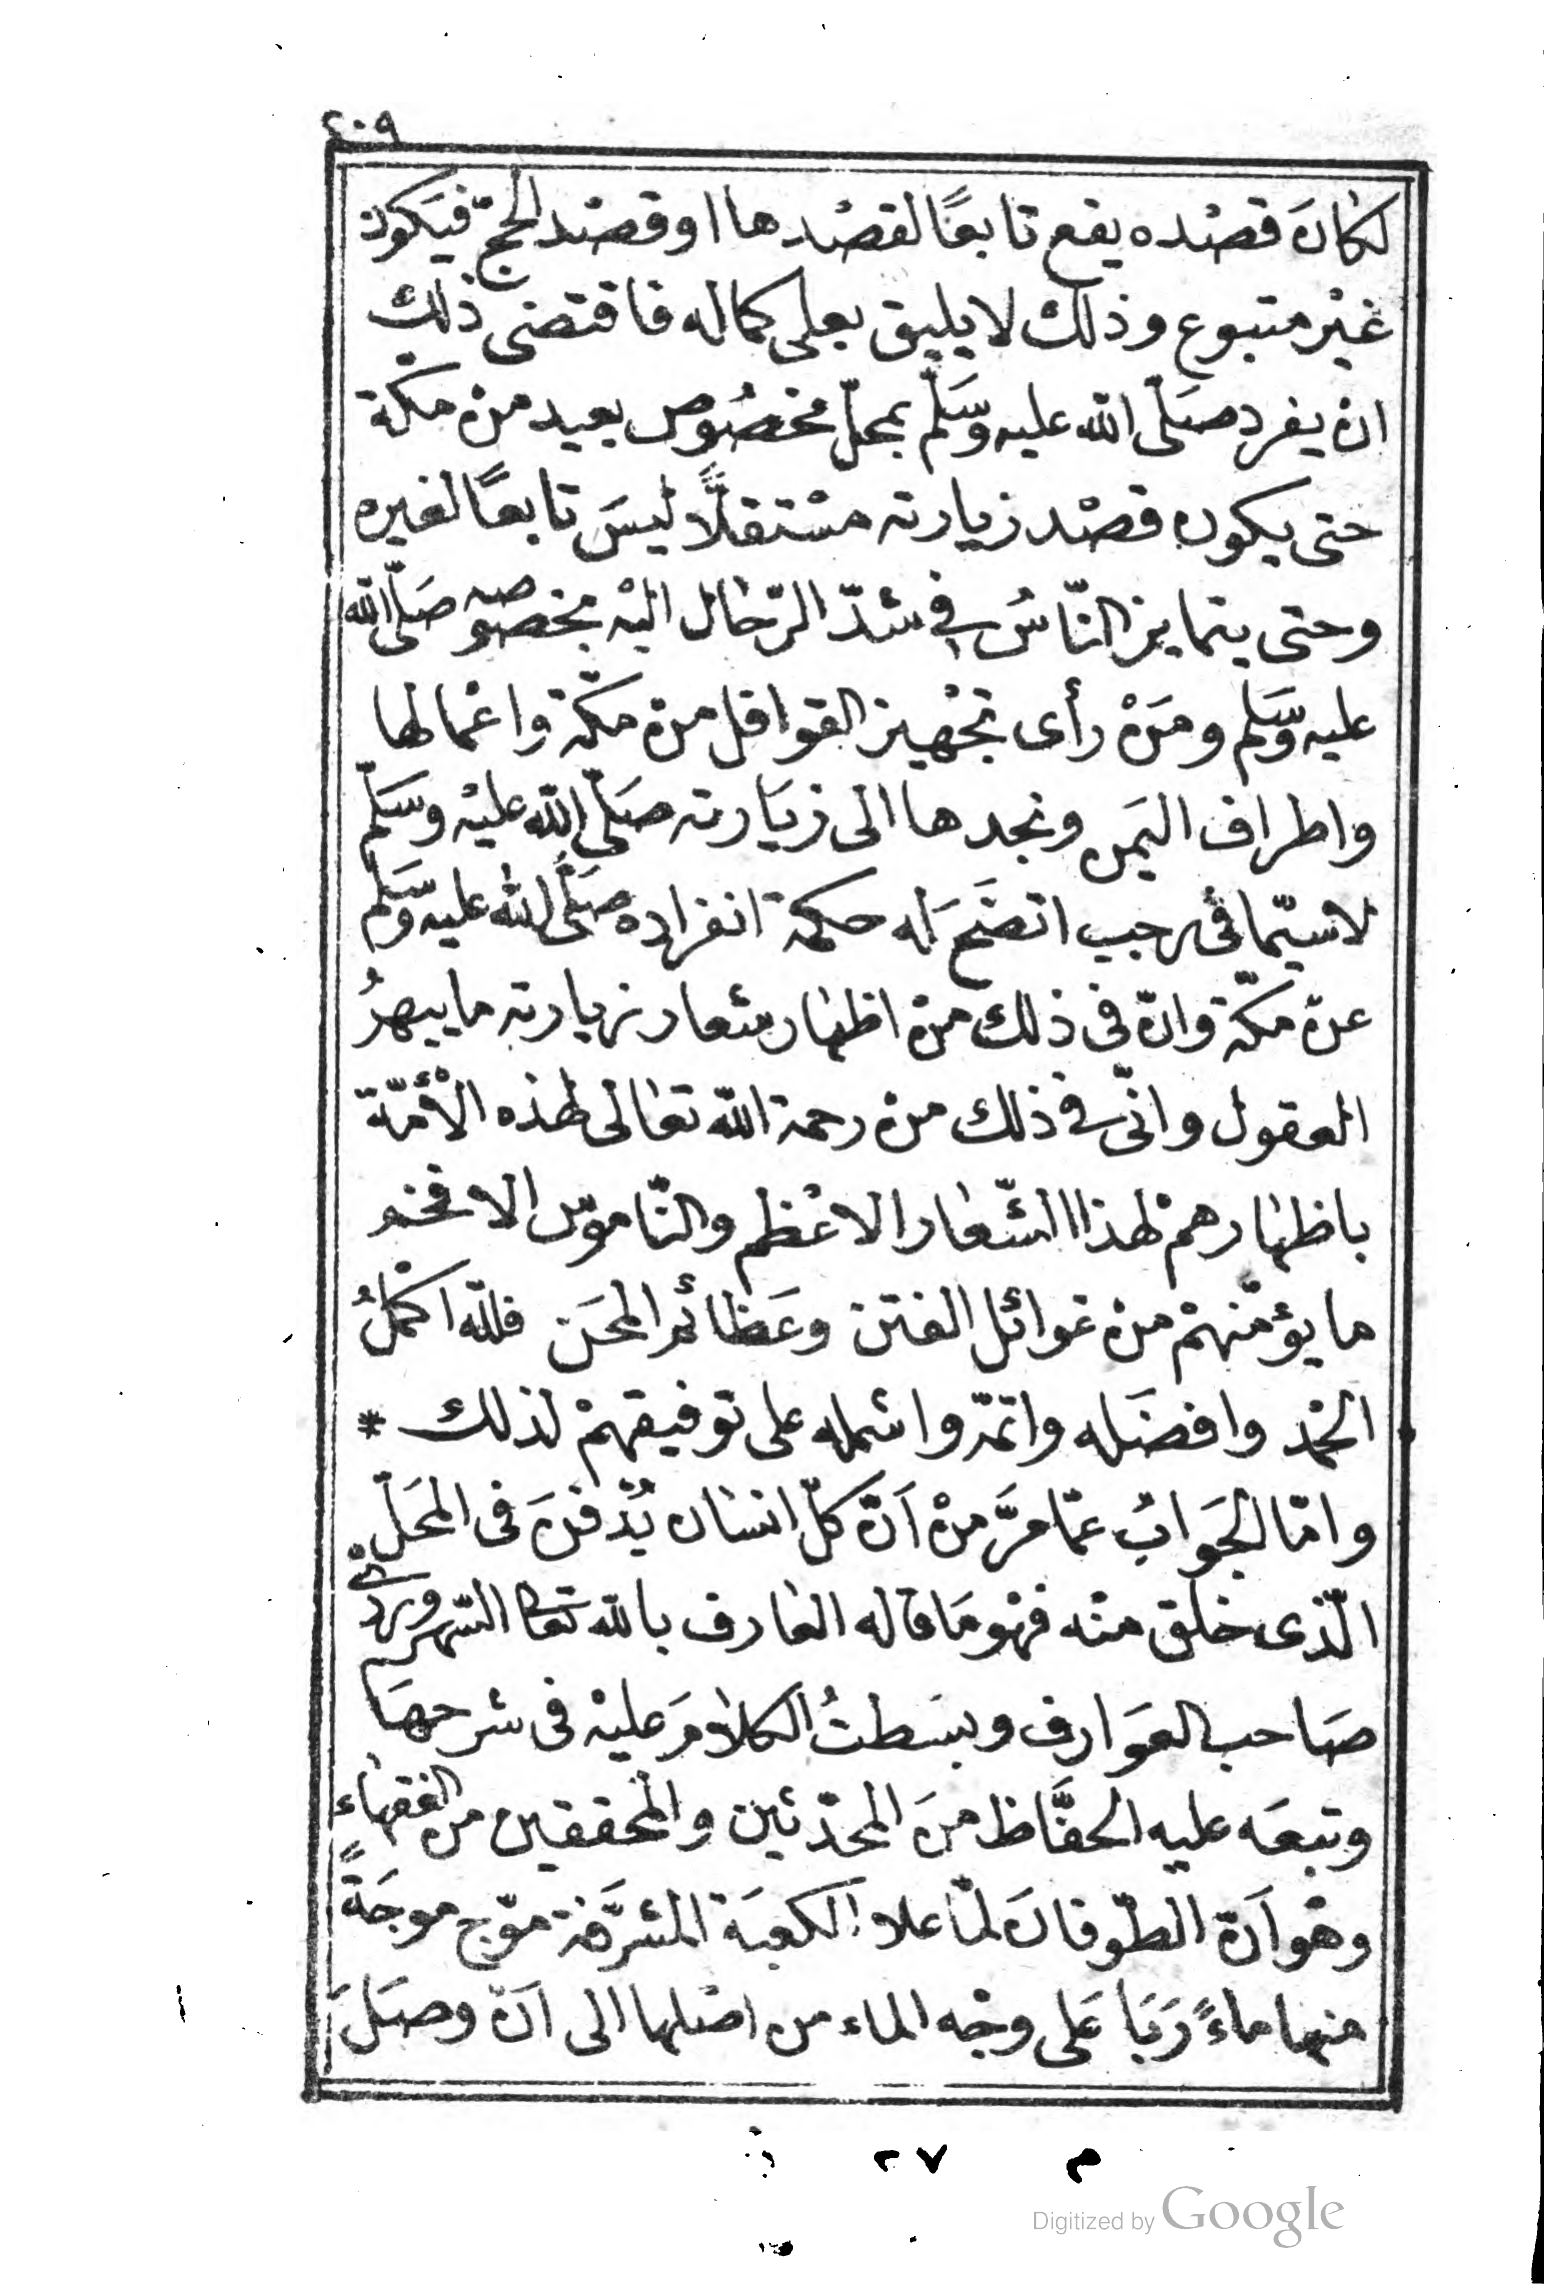 ٢٠٩
لكانَ قصْده يقع تابعًا لقصْدها او قصْد الحجّ فيَكون
غيْر متبوع وذلك لا يليق بعلى كماله فاقتضى ذلك
انْ يفرد صَلّى الله عليه وسَلّم بمحلّ مخصُوص بعيد منْ مكّة
حتى يكون قصْد زيارته مسْتقلًّا ليسَ تابعًا لغيره
وحتى يتمايز النّاسُ فى شدّ الرّحال اليْه بخصوصه صَلّى الله
عليه وسَلّم ومَنْ رأى تجْهيز القوافل منْ مكّة واعْمالها
واطراف اليَمن ونجدها الى زيَارته صَلّى الله عليْه وسَلّم
لاسيّما فى رجب اتضَحَ له حكمة انفراده صَلّى الله عليه وسَلّم
عنْ مكّة وانّ فى ذلك منْ اظهار شعار زيارته ما يبهرُ
العقول وانّ فى ذلك منْ رحمة الله تعالى لهذه الْأمّة
باظهارهمْ لهذا الشّعار الاعْظم والنّاموس الافخم
ما يؤمّنهمْ منْ غوائل الفتن وعَظائم المحَن فللّه اكْملُ
الحْمد وافضَله واتمّه واشمله على توفيقهمْ لذلك *
وامّا الجَوابُ عمّا مرَّ منْ اَنّ كلّ انسان يُدْفنَ فى المحَلّ
الّذى خلق منْه فهْو مَا قاله العارف بالله تعالى السّهرورديّ
صَاحب العَوارف وبسَطتُ الكلامَ عليْه فى شرحهَا
وتبعَه عليه الحفَّاظ منَ المحدّثين والمحققين من الفقهاء
وهْو اَنّ الطّوفانَ لمّا علا الكعبَة المشرَّفة موّج موجَةً
منها ماءً رَبَا عَلى وجْه الماء من اصْلها الى اَنْ وصَلَ
م ٢٧
Digitized by Google